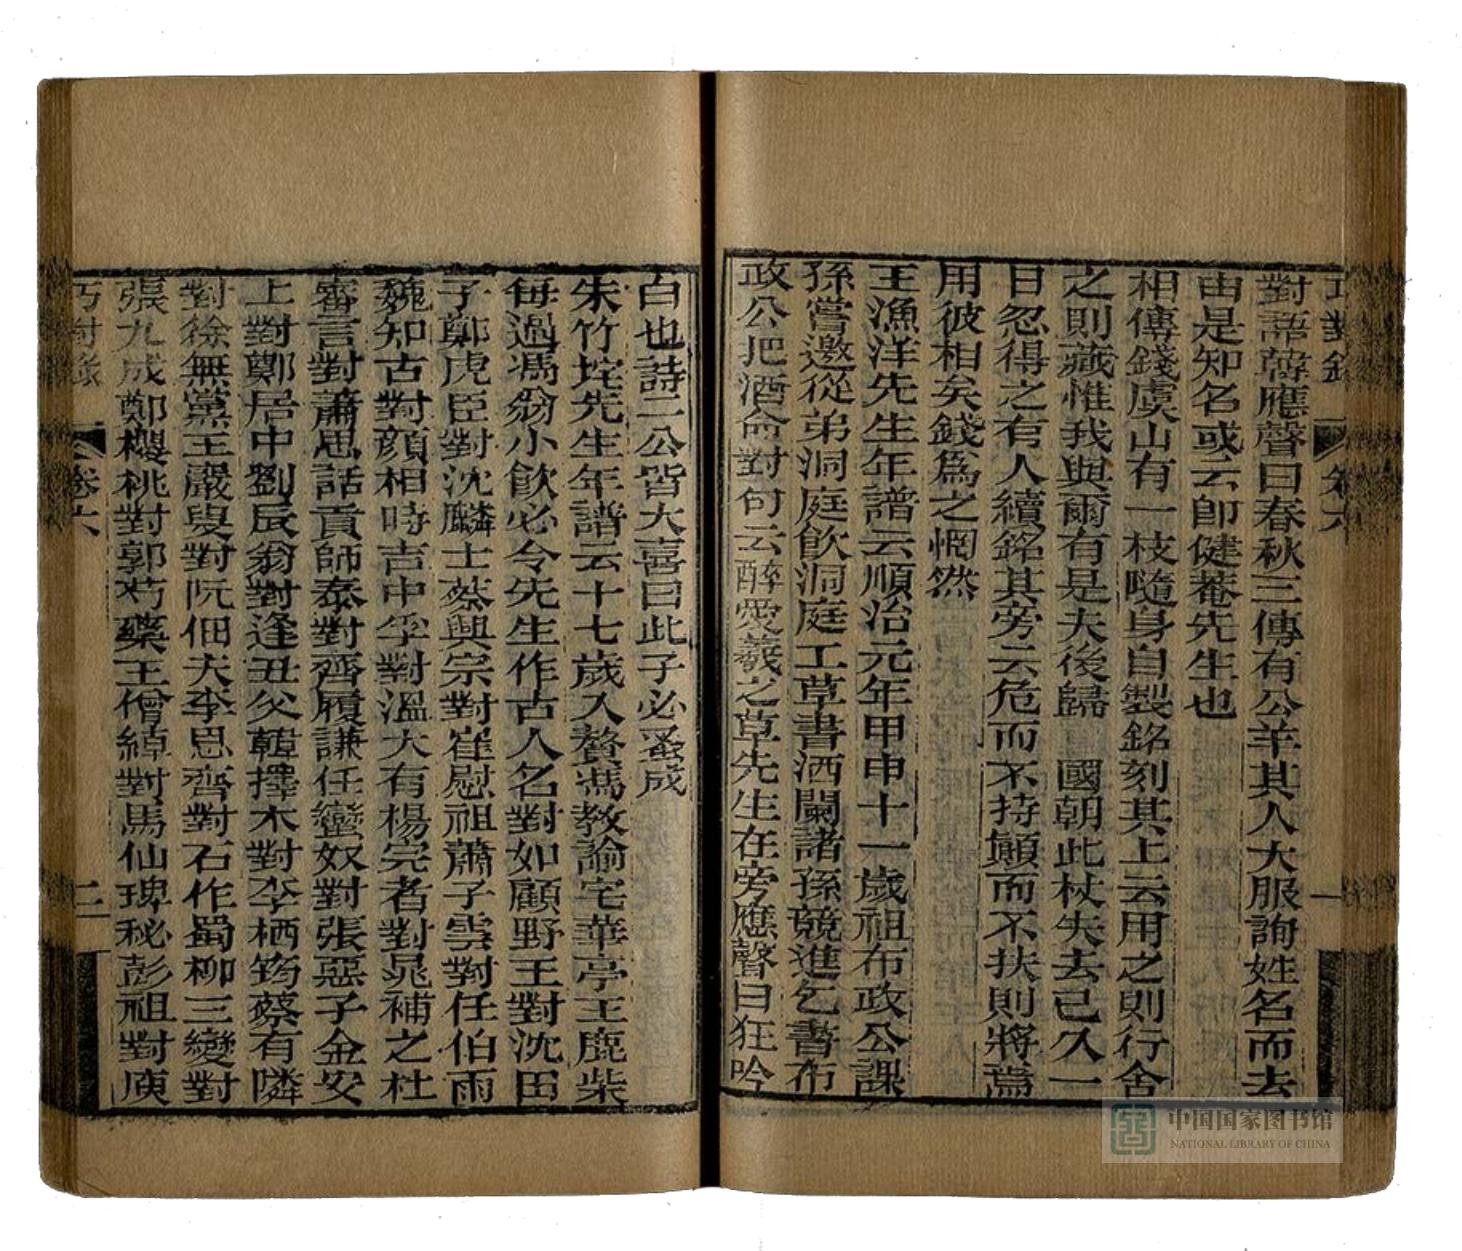 巧對錄
卷六
一
對語韓應聲曰春秋三傳有公羊其人大服詢姓名而去
由是知名或云卽健菴先生也
相傳錢虞山有一枝隨身自製銘刻其上云用之則行舍
之則藏惟我與爾有是夫後歸 國朝此杖失去已久一
日忽得之有人續銘其旁云危而不持顚而不扶則將焉
用彼相矣錢爲之惘然
王漁洋先生年譜云順治元年甲申十一歲祖布政公課
孫嘗邀從弟洞庭飲洞庭工草書酒闌諸孫競進乞書布
政公把酒命對句云醉愛羲之草先生在旁應聲曰狂吟
白也詩二公皆大喜曰此子必蚤成
朱竹垞先生年譜云十七歲入贅馮教諭宅華亭王鹿柴
每過馮翁小飲必令先生作古人名對如顧野王對沈田
子鄭虎臣對沈麟士蔡興宗對崔慰祖蕭子雲對任伯雨
魏知古對顏相時吉中孚對溫大有楊完者對晁補之杜
審言對蕭思話貢師泰對齊履謙任蠻奴對張惡子金安
上對鄭居中劉辰翁對逢丑父韓擇木對李栖筠蔡有隣
對徐無黨王嚴叟對阮佃夫李思齊對石作蜀柳三變對
張九成鄭櫻桃對郭芍藥王僧綽對馬仙琕秘彭祖對庾
巧對錄
卷六
二
中国国家图书馆
NATIONAL LIBRARY OF CHINA